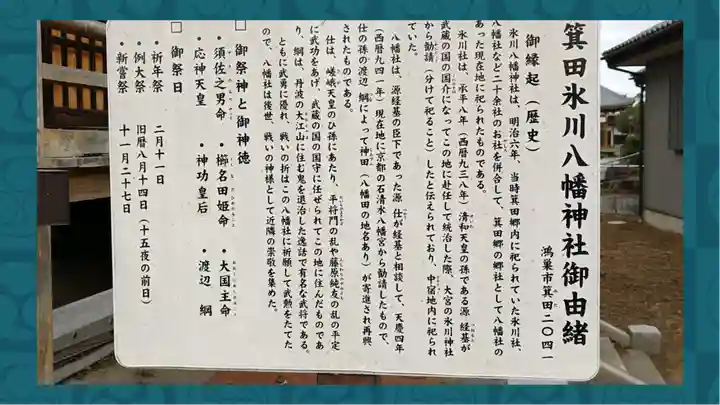 箕田氷川八幡神社御由緒
鴻巣市箕田二〇四一
御縁起(歴史)
氷川八幡神社は、明治六年、当時箕田郷内に祀られていた氷川社、
八幡社など二十余社のお社を併合して、箕田郷の郷社として八幡社の
あった現在地に祀られたものである。
氷川社は、承平八年(西暦九三八年)清和天皇の孫である源 経基が
武蔵の国の国介になってこの地に赴任して統治した際、大宮の氷川神社
から勧請(分けて祀ること)したと伝えられており、中宿地内に祀られ
ていた。
八幡社は、源経基の臣下であった源 仕が経基と相談して、天慶四年
(西暦九四一年)現在地に京都の石清水八幡宮から勧請したもので、
仕の孫の渡辺 綱によって神田(八幡田の地名あり)が寄進され再興
されたものである。
仕は、嵯峨天皇のひ孫にあたり、平将門の乱や藤原純友の乱の平定
に武功をあげ、武蔵の国の国守に任ぜられてこの地に住んだものであ
り、綱は、丹波の大江山に住む鬼を退治した逸話で有名な武将である。
ともに武勇に優れ、戦いの折はこの八幡社に祈願して武勲をたてた
ので、八幡社は後世、戦いの神様として近隣の崇敬を集めた。
□ 御祭神と御神徳
・須佐之男命 ・櫛名田姫命 ・大国主命
・応神天皇 ・神功皇后 ・渡辺 綱
□ 御祭日
・祈年祭 二月十一日
・例大祭 旧暦八月十四日(十五夜の前日)
・新嘗祭 十一月二十七日